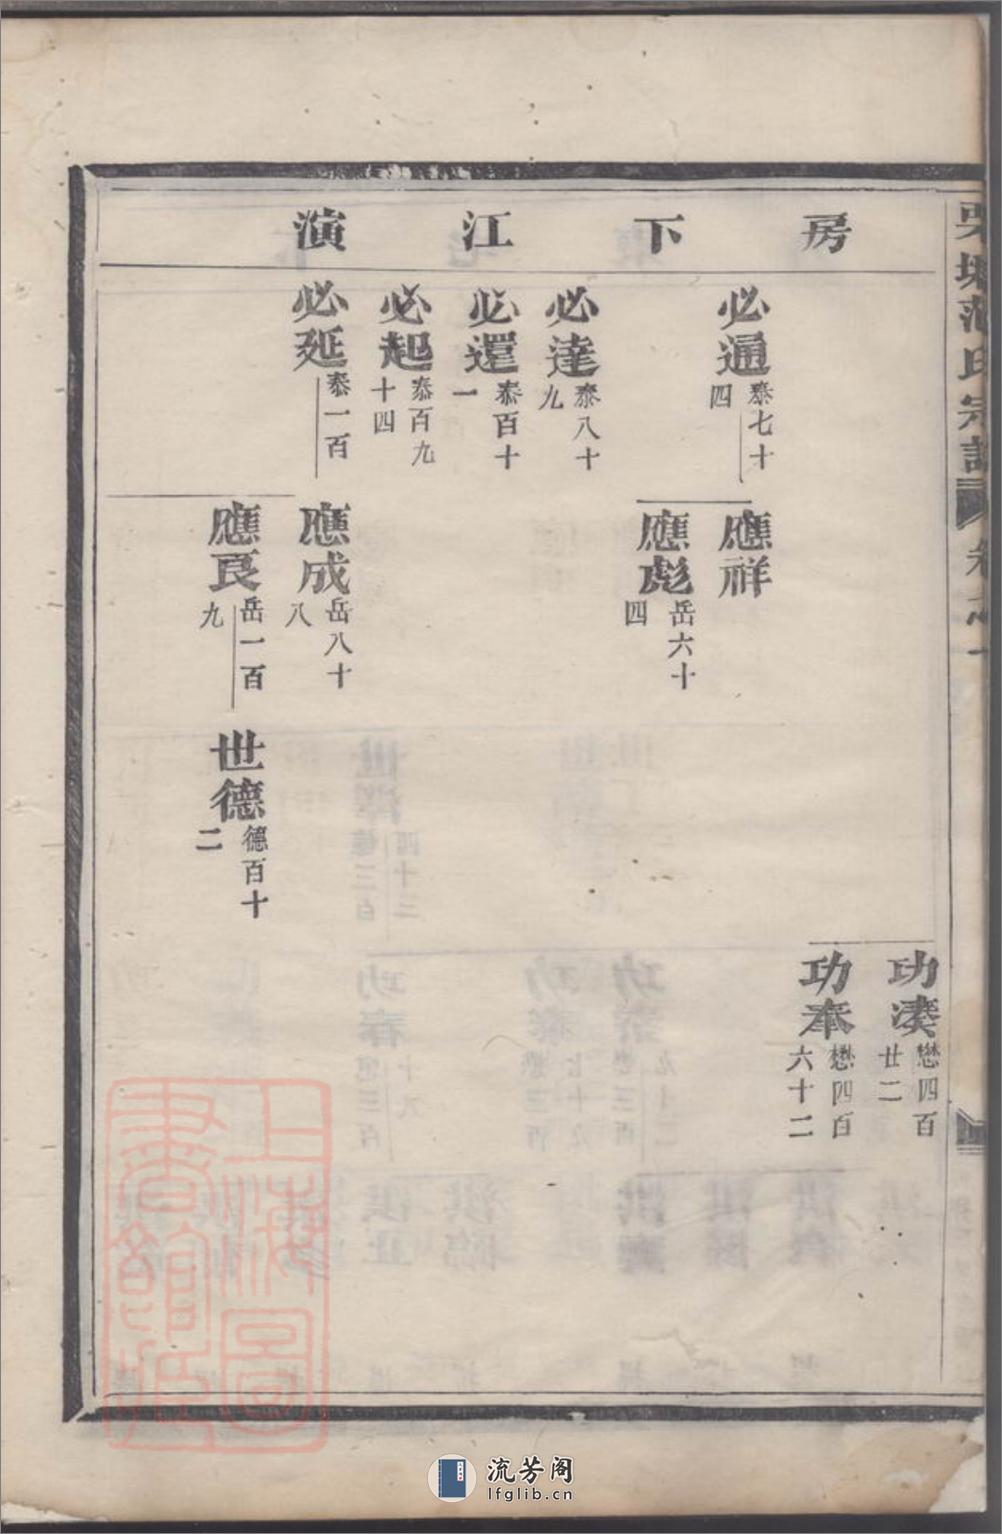 范氏宗譜
房下江演
必通 泰七十四
必達 泰八十九
必還 泰百十一
必起 泰百九十四
必延 泰一百
應祥
應彪 岳六十四
應成 岳八十八
應良 岳一百九
世德 德百十二
功湊 懋四百廿二
功奉 懋四百六十二
上海圖書館藏
流芳阁
lfglib.cn